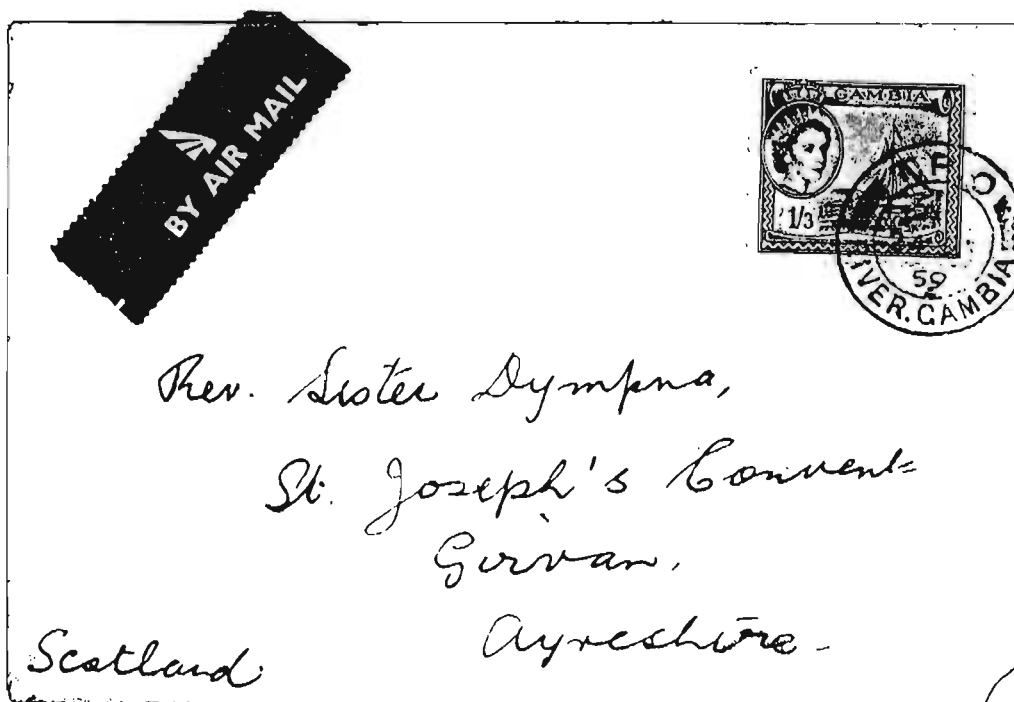 BY AIR MAIL
GAMBIA
1/3
59
IVER. GAMBIA
Rev. Sister Dympna,
St. Joseph's Convent
Girvan,
Ayreshire.
Scotland